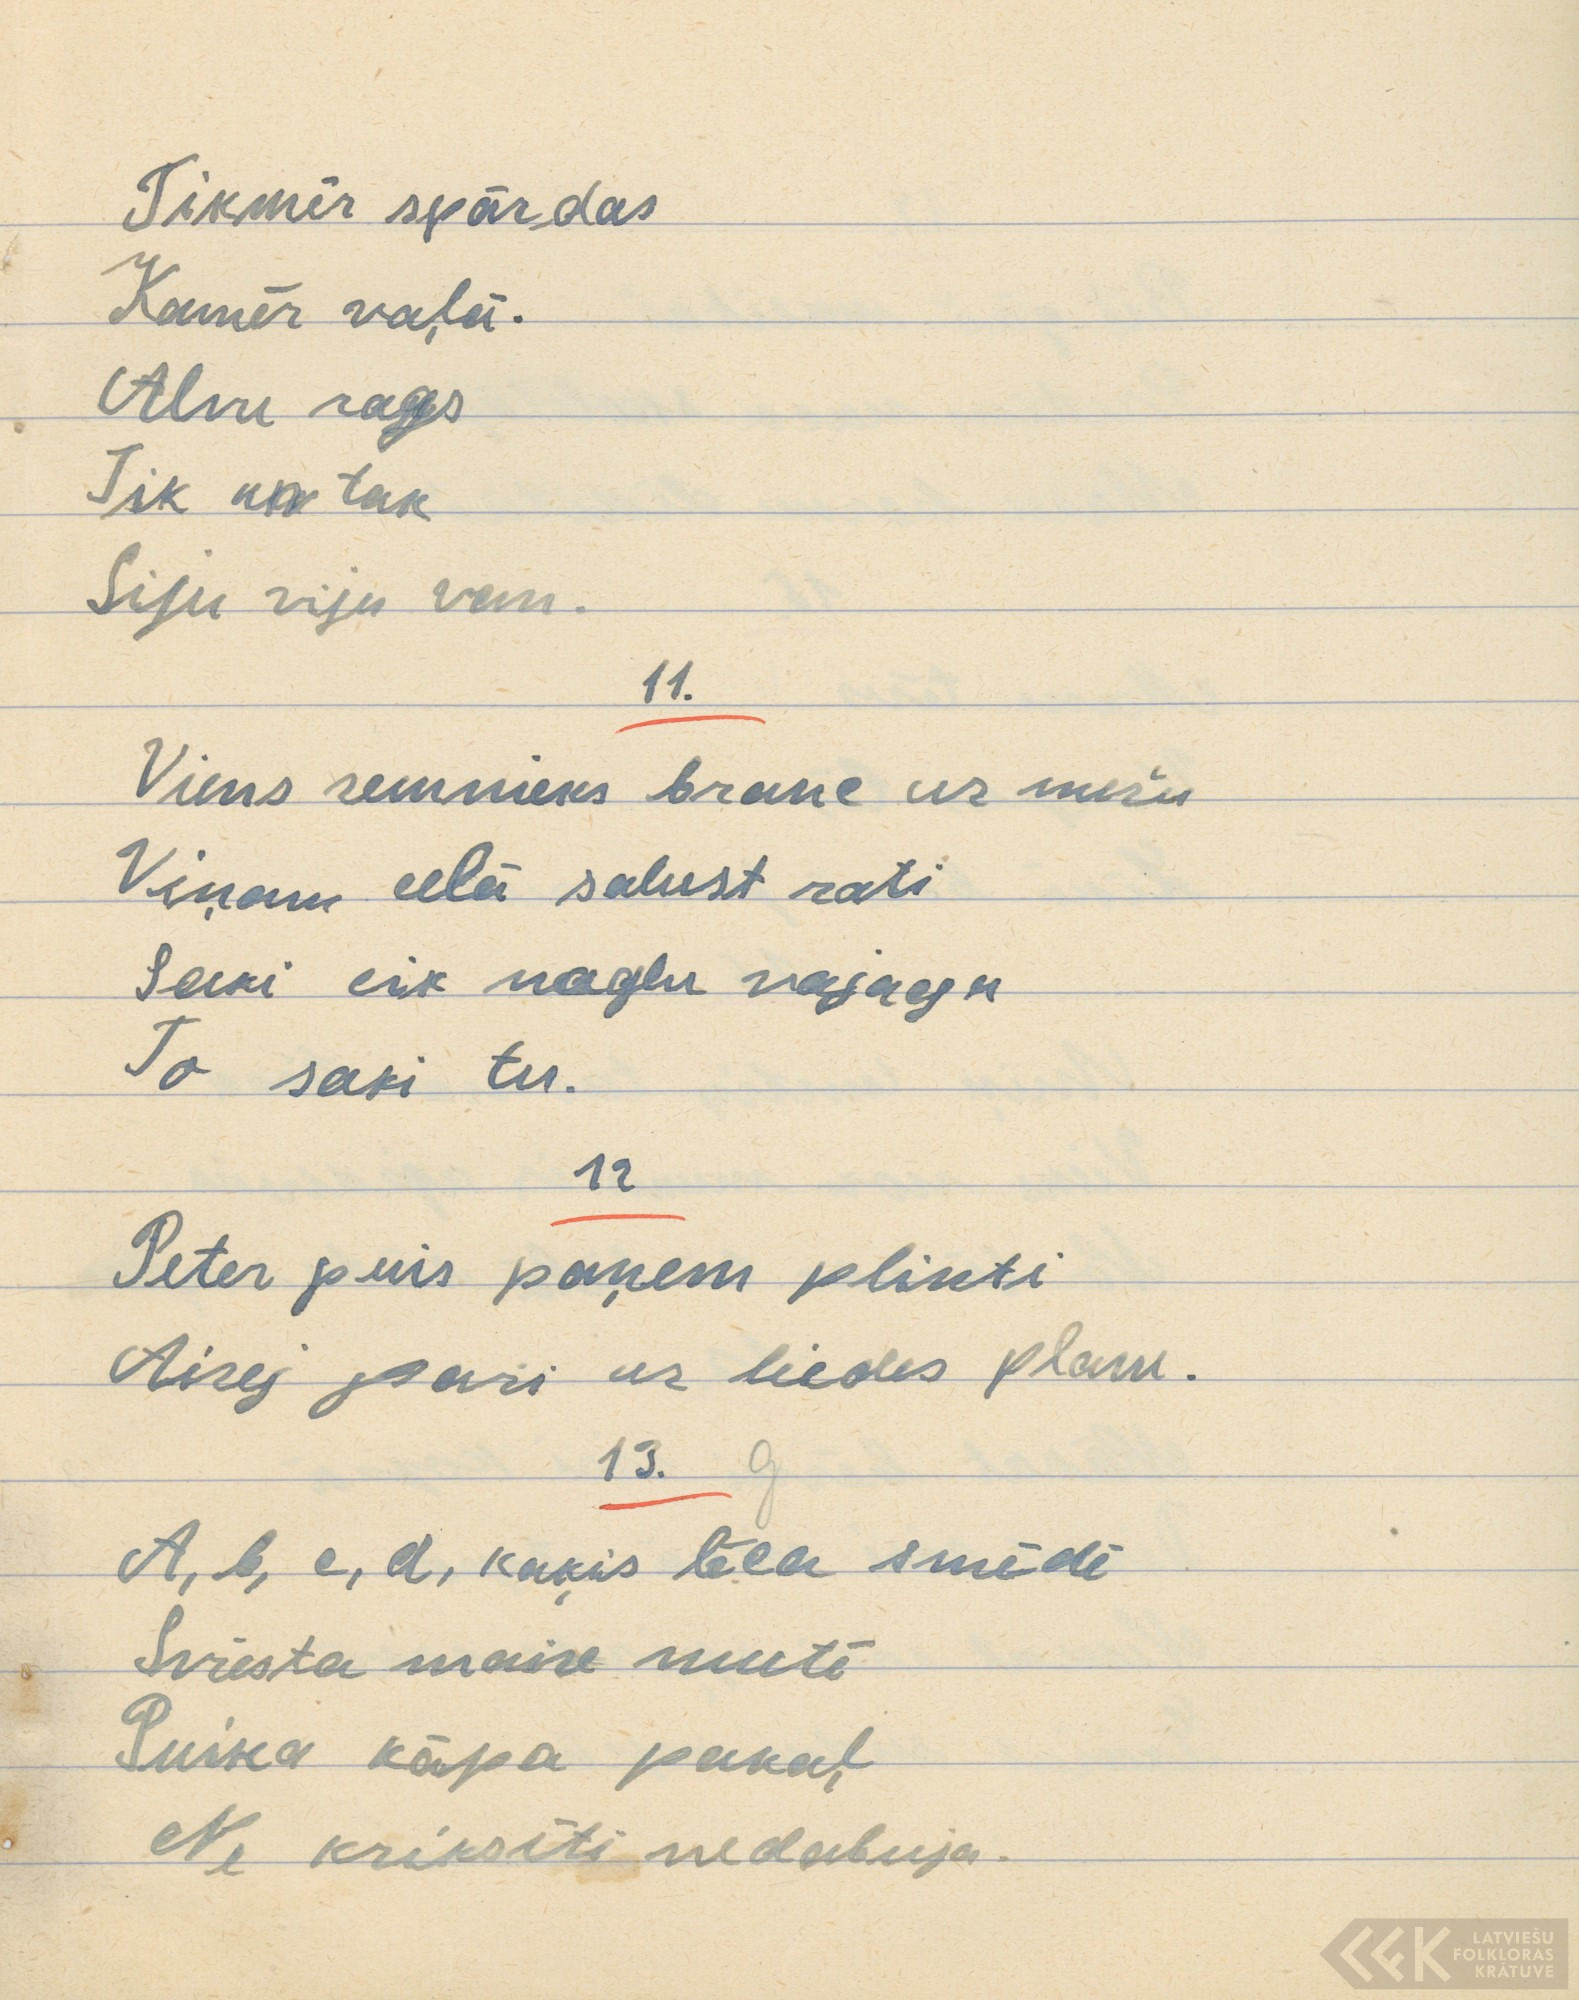 Tikmēr spārdas
Kamēr vaļā.
Alvu rags
Tik un tak
Siju viju vem.
11.
Viens zemnieks brauc uz mežu
Viņam ceļā salūst rati
Saki cik naglu vajaga
To saki tu.
12
Peter puis paņem plinti
Aizej pari uz liedes plam.
13. g
A, b, c, d, kaķis lēca smēdē
Sviesta maize mutē
Puika kāpa pakaļ
Ne kriksīti nedabuja.
LATVIEŠU
FOLKLORAS
KRĀTUVE